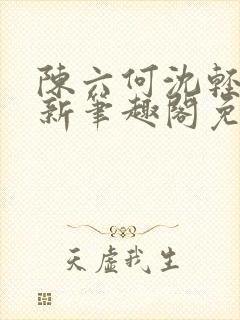 陳六何沈輕
新筆趣閣免
天虛我生